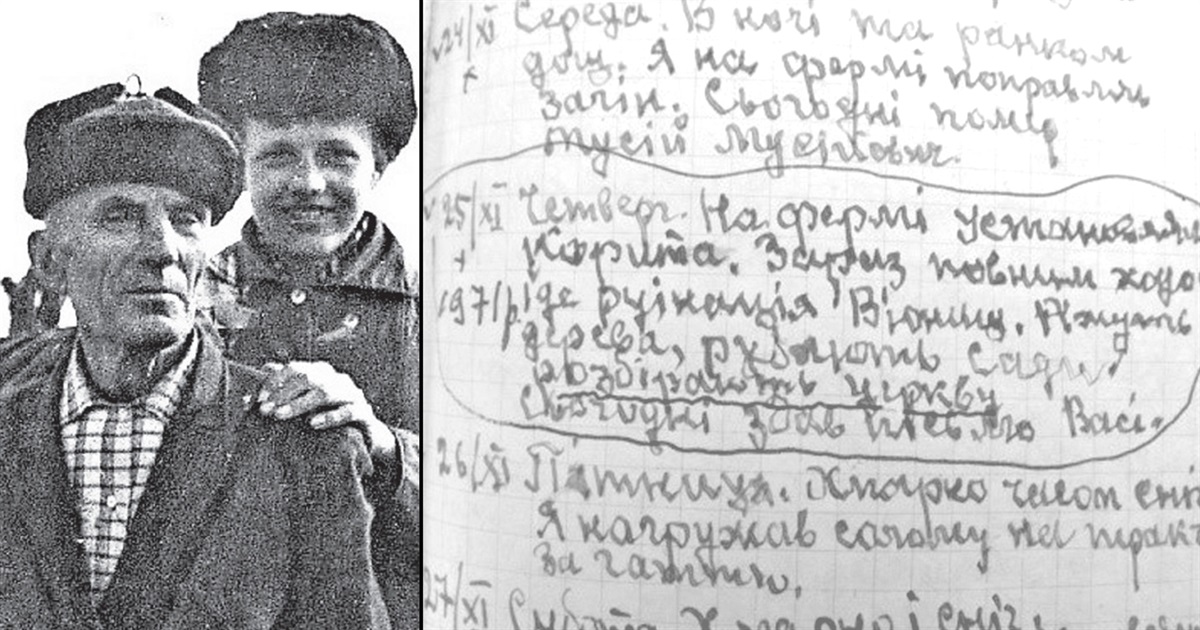 24/XI Середа. В ночі та ранком
дощ. Я на фермі поправляв
загін. Сьогодні помер
Мусійович.
25/XI Четверг. На фермі
корита. Зараз повним ходо
1971р. іде руінація Вюнищ. Ріжуть
дерева, рубають сади,
розбірають церкву
Сьогодні здав письмо Васі.
26/XI Пятниця. Хмарно часом сні
Я нагружав солому на трак
за
27/XI Субота. Хмарно і сніг.